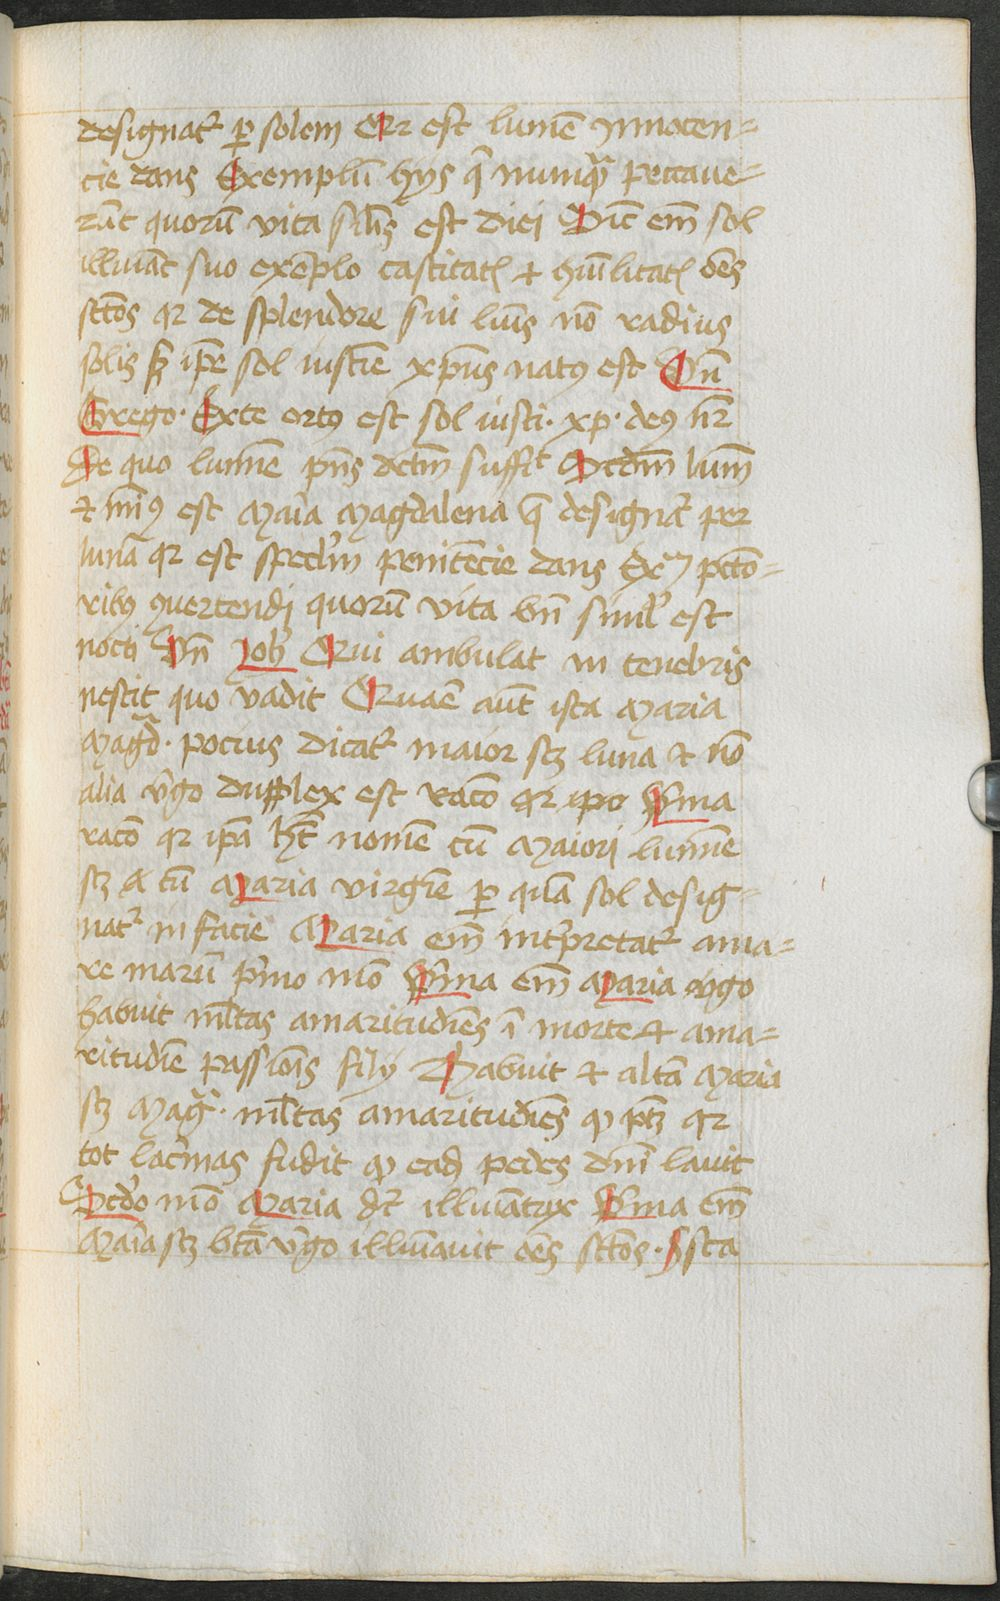 designat᷑ ꝑ solem Qꝛ est lumē ynnocen-
cie dans Exemplū hijs q̄ numqᷓ peccaue-
rūt quorū vita sil̄is est diei Dic̄ em̄ sol
illuīat suo exēplo castitatꝭ ⁊ hūilitatꝭ oēs
sc̄tos qꝛ de splendore sui luīs nō radius
solis sꝫ ip̄e sol iusticie xp̄us natꝰ est Vn̄
Grego. Ex te ortꝰ est sol iusti. xp̄. deꝰ nr̄
De quo lumīe pn̄s dc̄tm suffic̄ Scdm̄ lum̄
⁊ mīꝰ est Maīa Magdalena q̄ designat᷑ per
lunā qꝛ est specl̄m penitēcie dans Ex̄ pctō-
ribꝰ ꝯuertendi quorū vita bn̄ simil̄ est
nocti Vn̄ Joh̄ Qui ambulat in tenebris
nescit quo vadit Quare aut̄ ista Maria
Magd̄. pocius dicat᷑ maior scꝫ luna ⁊ nō
alia v̄go duplex est racō qꝛ ip̄e Prima
racō qꝛ ip̄a hꝫ nomē cū Maiori lumīe
scꝫ cū Maria virgīe ꝑ quā sol desig-
nat᷑ in facie Maria em̄ int̄pretat᷑ ama-
re marū p̄mo mō Prima em̄ Maria v̄go
habuit ml̄tas amaritudīes ī morte ⁊ ama-
ritudīe passiōis filij Habuit ⁊ altā Maria
scꝫ Magᷓ. ml̄tas amaritudīes ꝙ ptꝫ qꝛ
tot lac̄mas fudit ꝙ eaꝫ pedes dn̄i lauit
Scdō mō Maria dr̄ illuīatrix Prima em̄
Maīa scꝫ btā v̄go illuīauit oēs sc̄tos. Ista